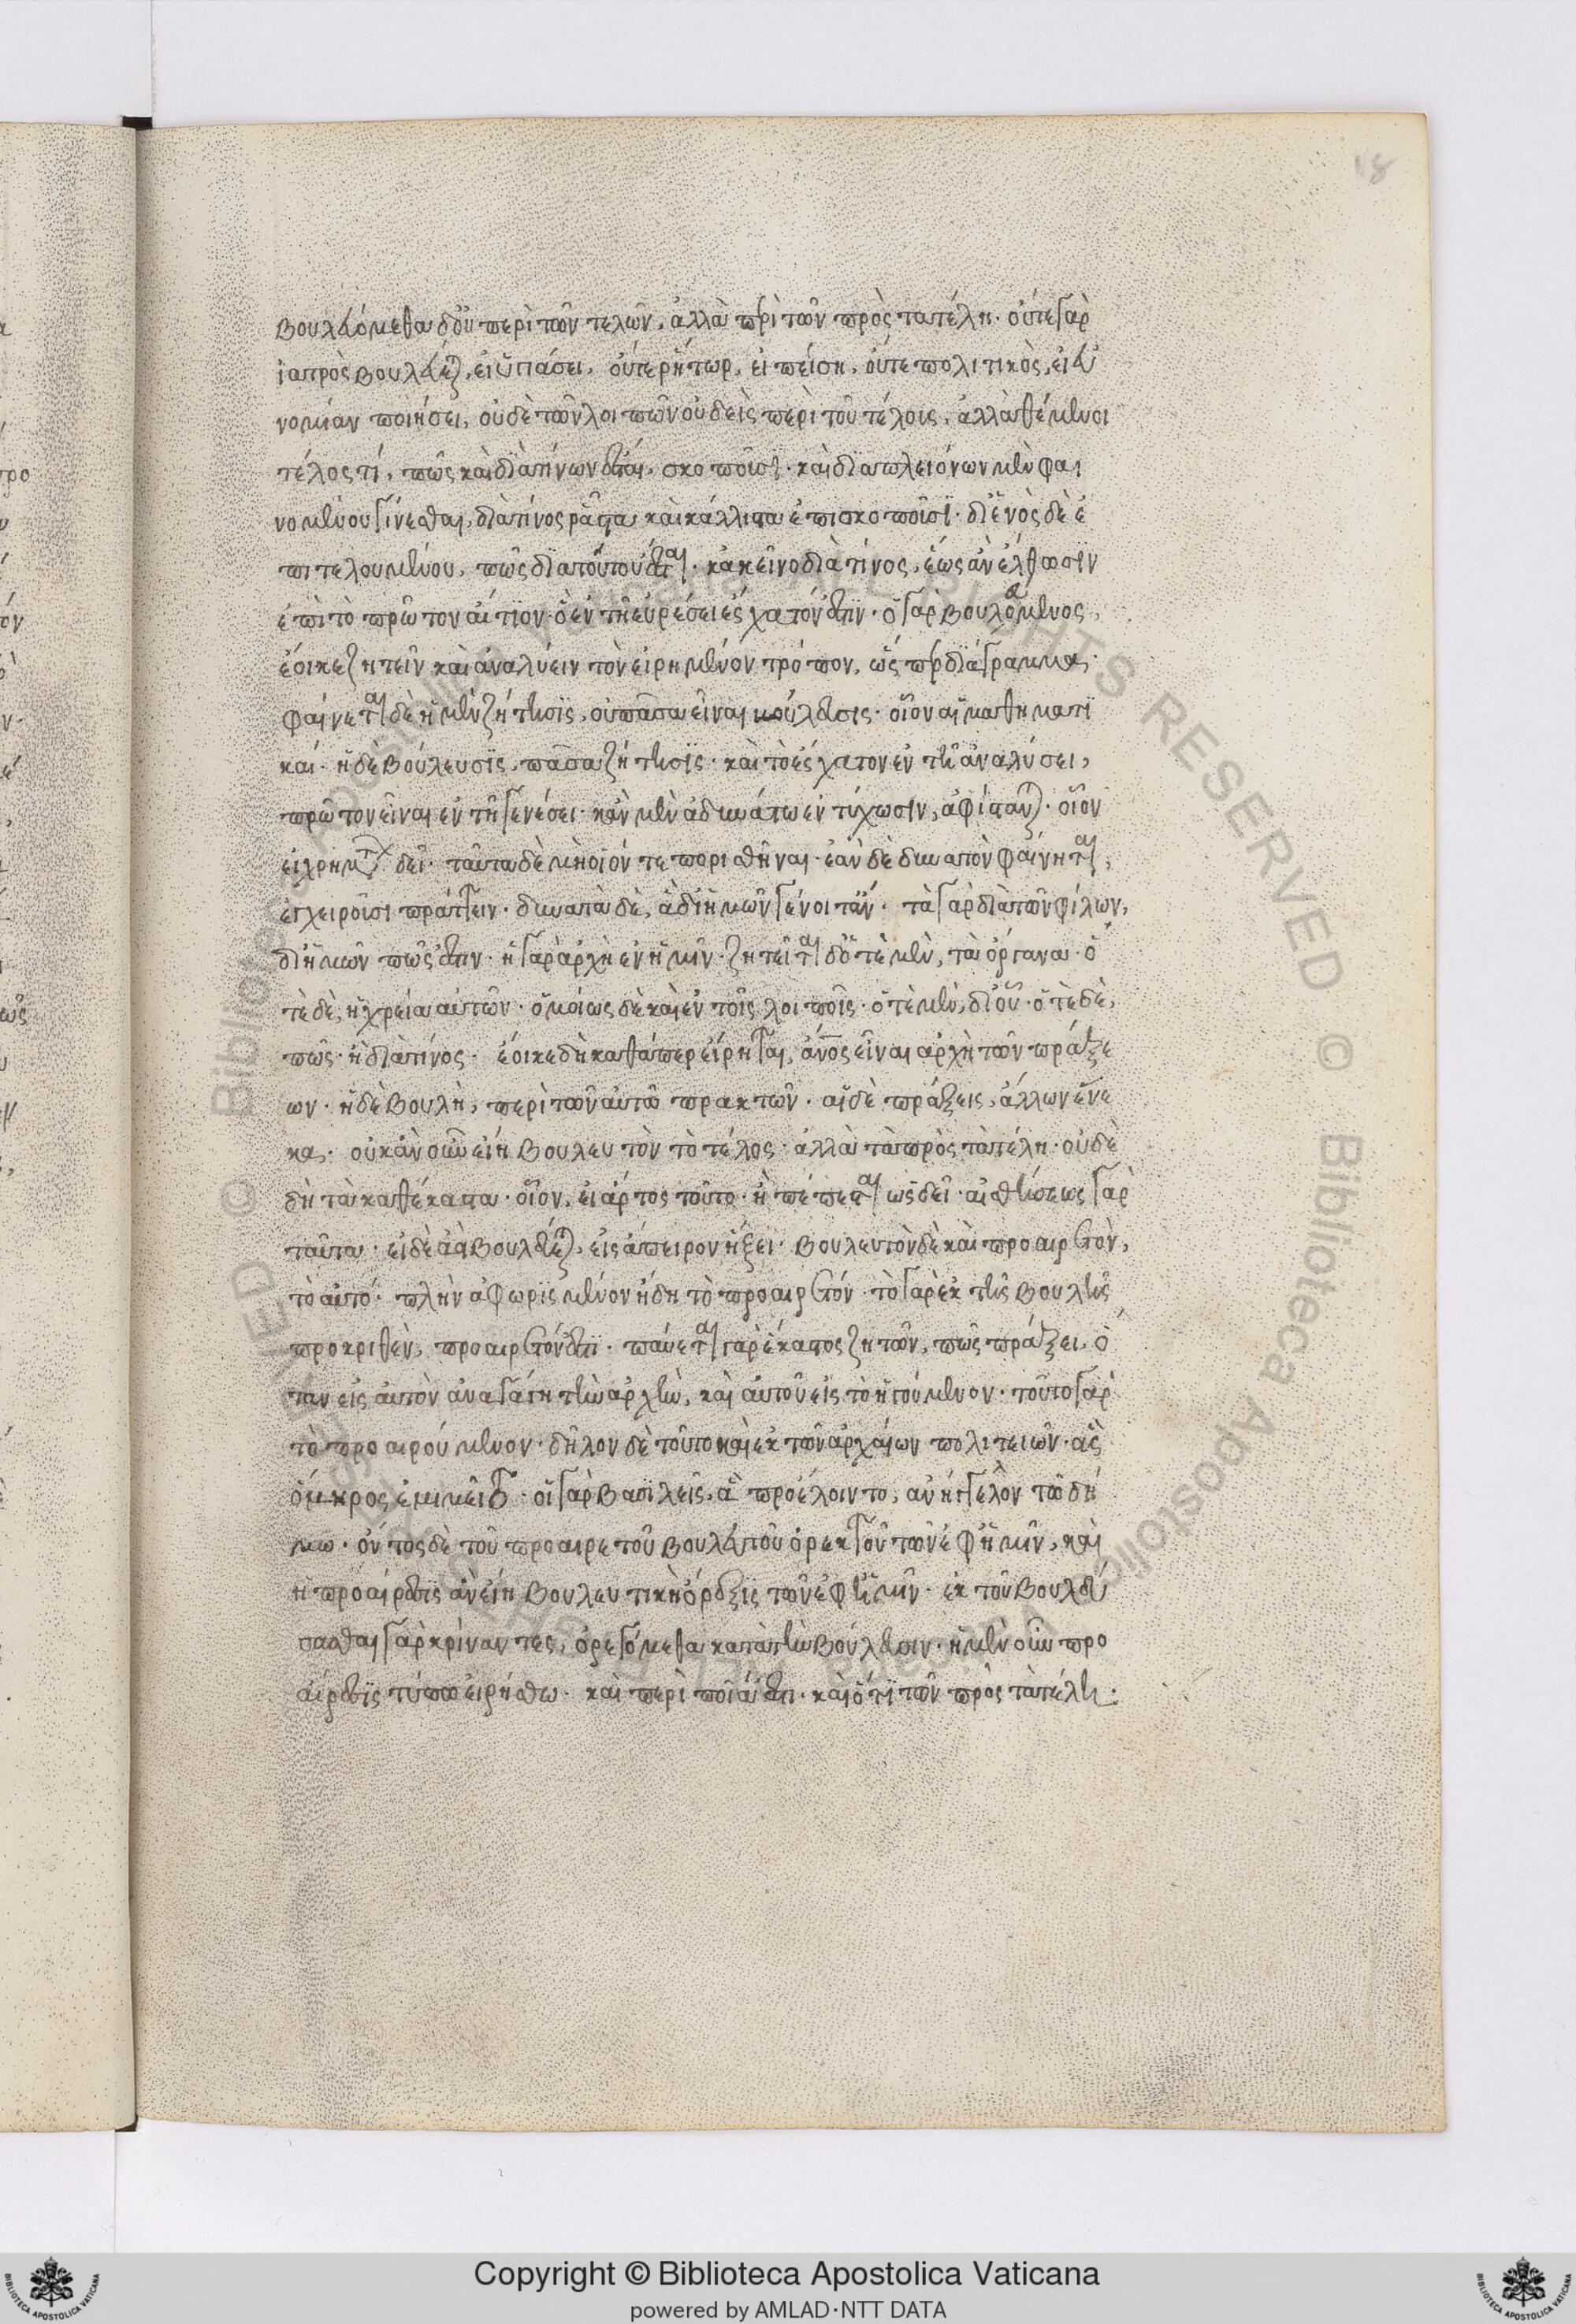 18
βουλευόμεθα δ' οὐ περὶ τῶν τελῶν, ἀλλὰ περὶ τῶν πρὸς τὰ τέλη· οὔτε γὰρ
ἰατρὸς βουλεύεται, εἰ ὑγιάσει, οὔτε ῥήτωρ, εἰ πείση, οὔτε πολιτικὸς, εἰ εὐ
νομίαν ποιήσει, οὐδὲ τῶν λοιπῶν οὐδεὶς περὶ τοῦ τέλους, ἀλλὰ θέμενοι
τέλος τί, πῶς καὶ διὰ τίνων ἔσται, σκοποῦσι· καὶ διὰ πλειόνων μὲν φαι
νομένου γίνεσθαι, διὰ τίνος ῥᾶστα καὶ κάλλιστα ἐπισκοποῦσι· δι' ἑνὸς δὲ ἐ
πιτελουμένου, πῶς διὰ τούτου ἔσται· κἀκεῖνο διὰ τίνος, ἕως ἂν ἔλθωσιν
ἐπὶ τὸ πρῶτον αἴτιον· ὃ ἐν τῆ εὑρέσει ἔσχατόν ἐστιν· ὁ γὰρ βουλευόμενος,
ἔοικε ζητεῖν καὶ ἀναλύειν τὸν εἰρημένον τρόπον, ὥσπερ διάγραμμα·
φαίνεται δὲ ἡ μὲν ζήτησις, οὐ πᾶσα εἶναι βούλευσις· οἷον αἱ μαθηματι
καί· ἡ δὲ βούλευσις, πᾶσα ζήτησις· καὶ τὸ ἔσχατον ἐν τῆ ἀναλύσει,
πρῶτον εἶναι ἐν τῆ γενέσει· κἂν μὲν ἀδυνάτω ἐντύχωσιν, ἀφίστανται· οἷον
εἰ χρημάτων δεῖ· ταῦτα δὲ μὴ οἷόν τε πορισθῆναι· ἐὰν δὲ δυνατὸν φαίνηται,
ἐγχειροῦσι πράττειν· δυνατὰ δὲ, ἃ δι' ἡμῶν γένοιτ' ἄν· τὰ γὰρ διὰ τῶν φίλων,
δι' ἡμῶν πῶς ἐστιν· ἡ γὰρ ἀρχὴ ἐν ἡμῖν· ζητεῖται δ' ὁτὲ μὲν, τὰ ὄργανα· ὁ
τὲ δὲ, ἡ χρεία αὐτῶν· ὁμοίως δὲ καὶ ἐν τοῖς λοιποῖς· ὁτὲ μὲν, δι' οὗ· ὁτὲ δὲ,
πῶς· ἢ διὰ τίνος· ἔοικε δὴ καθάπερ εἴρηται, ἄνος εἶναι ἀρχὴ τῶν πράξε
ων· ἡ δὲ βουλὴ, περὶ τῶν αὐτῶ πρακτῶν· αἱ δὲ πράξεις, ἄλλων ἕνε
κα· οὐκ ἂν οὖν εἴη βουλευτὸν τὸ τέλος· ἀλλὰ τὰ πρὸς τὰ τέλη· οὐδὲ
δὴ τὰ καθέκαστα· οἷον, εἰ ἄρτος τοῦτο· ἢ πέπεπται ὡς δεῖ· αἰσθήσεως γὰρ
ταῦτα· εἰ δὲ ἀεὶ βουλεύεται, εἰς ἄπειρον ἥξει· βουλευτὸν δὲ καὶ προαιρετὸν,
τὸ αὐτό· πλὴν ἀφωρισμένον ἤδη τὸ προαιρετόν· τὸ γὰρ ἐκ τῆς βουλῆς
προκριθὲν, προαιρετόν ἐστι· παύεται γὰρ ἕκαστος ζητῶν, πῶς πράξει, ὅ
ταν εἰς αὑτὸν ἀναγάγη τὴν ἀρχὴν, καὶ αὑτοῦ εἰς τὸ ἡγούμενον· τοῦτο γὰρ
τὸ προαιρούμενον· δῆλον δὲ τοῦτο καὶ ἐκ τῶν ἀρχαίων πολιτειῶν· ἃς
ὅμηρος ἐμιμεῖτο· οἱ γὰρ βασιλεῖς, ἃ προέλοιντο, ἀνήγγελον τῶ δή
μω· ὄντος δὲ τοῦ προαιρετοῦ βουλευτοῦ ὀρεκτοῦ τῶν ἐφ' ἡμῖν, καὶ
ἡ προαίρεσις ἂν εἴη βουλευτικὴ ὄρεξις τῶν ἐφ' ἡμῖν· ἐκ τοῦ βουλεύ
σασθαι γὰρ κρίναντες, ὀρεγόμεθα κατὰ τὴν βούλευσιν· ἡ μὲν οὖν προ
αίρεσις τύπω εἰρήσθω· καὶ περὶ ποῖά ἐστι· καὶ ὅτι τῶν πρὸς τὰ τέλη:
Copyright © Biblioteca Apostolica Vaticana
powered by AMLAD·NTT DATA